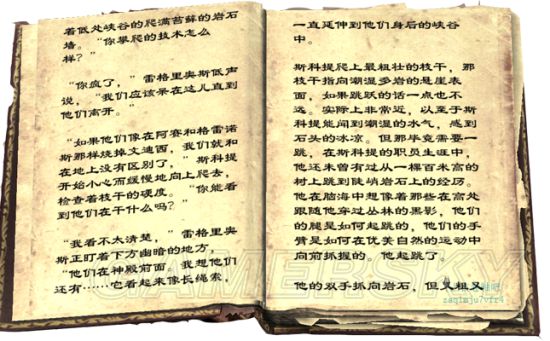 着低处峡谷的爬满苔藓的岩石
墙。“你攀爬的技术怎么
样？”
“你疯了，”雷格里奥斯低声
说，“我们应该呆在这儿直到
他们离开。”
“如果他们像在阿赛和格雷诺
斯那样烧掉文迪西，我们就和
在地上没有区别了，”斯科提
开始小心而缓慢地向上爬去，
检查着枝干的硬度。“你能看
到他们在干什么吗？”
“我看不太清楚，”雷格里奥
斯正盯着下方幽暗的地方，
“他们在神殿前面。我想他们
还有……它看起来像长绳索，
一直延伸到他们身后的峡谷
中。
斯科提爬上最粗壮的枝干，那
枝干指向潮湿多岩的悬崖表
面，如果跳跃的话一点也不
远。实际上非常近，以至于斯
科提能闻到潮湿的水气，感到
石头的冰凉。但那毕竟需要一
跳，在斯科提的职员生涯中，
他还未曾有过从一棵百米高的
树上跳到陡峭岩石上的经历。
他在脑海中想像着那些在高处
跟随他穿过丛林的黑影，他们
的腿是如何起跳的，他们的手
臂是如何在优美自然的运动中
向前抓握的。他起跳了。
他的双手抓向岩石，但又粗又
GAMERSKY
zaqimju7vfr4